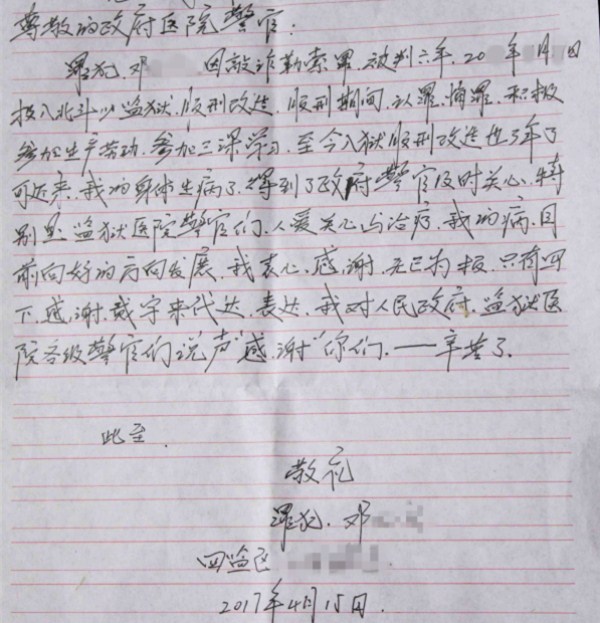 尊敬的政府医院警官:
罪犯.邓 因敲诈勒索罪.被判六年.20 年 月 日
投入北斗山监狱.服刑改造.服刑期间.认罪.悔罪.积极
参加生产劳动.参加三课学习.至今入狱服刑改造也3年了
可近来.我的身体生病了.得到了政府警官及时关心.特
别是监狱医院警官们.人爱关心与治疗.我的病.目
前向好的方向发展.我衷心.感.谢.无已为报.只有写
下.感.谢.载字来代达.表达.我对人民政府.监狱医
院各级警官们说声"感谢"你们.——辛苦了.
此至.
敬礼
罪犯.邓
四监区
2017年4月15日.